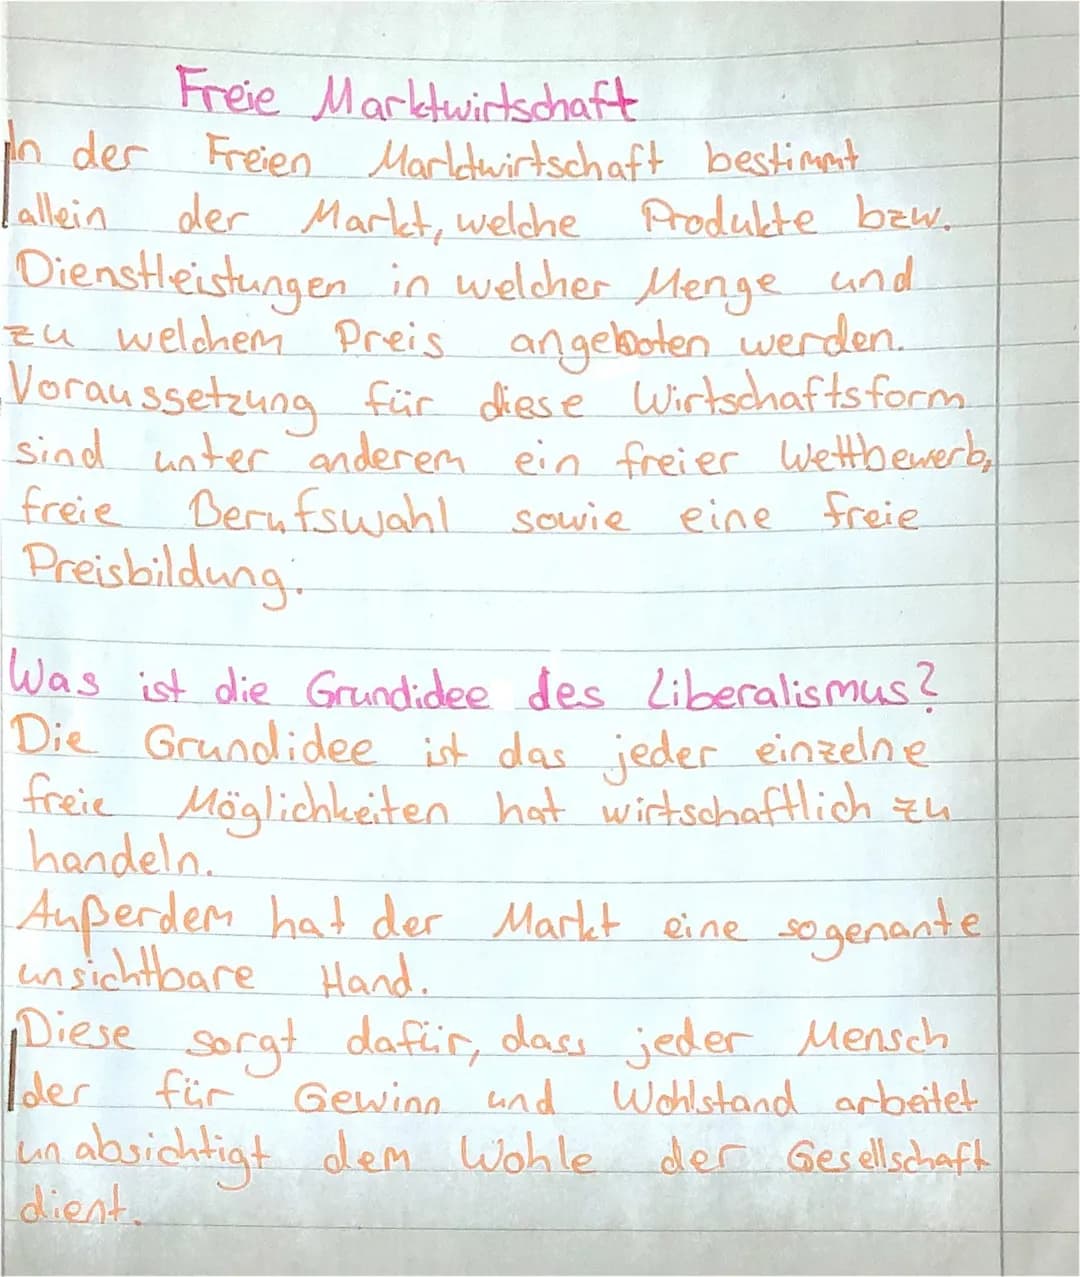 Freie Marktwirtschaft
In der Freien Marktwirtschaft bestimmt
allein der Markt, welche Produkte bzw.
Dienstleistungen in welcher Menge und
zu welchem Preis angeboten werden.
Voraussetzung für diese Wirtschaftsform
sind unter anderem ein freier Wettbewerb,
freie Berufswahl sowie eine freie
Preisbildung.
Was ist die Grundidee des Liberalismus?
Die Grundidee ist das jeder einzelne
freie Möglichkeiten hat wirtschaftlich zu
handeln.
Außerdem hat der Markt eine sogenante
unsichtbare Hand.
Diese sorgt dafür, dass jeder Mensch
der für Gewinn und Wohlstand arbeitet
unabsichtigt dem Wohle der Gesellschaft
dient.